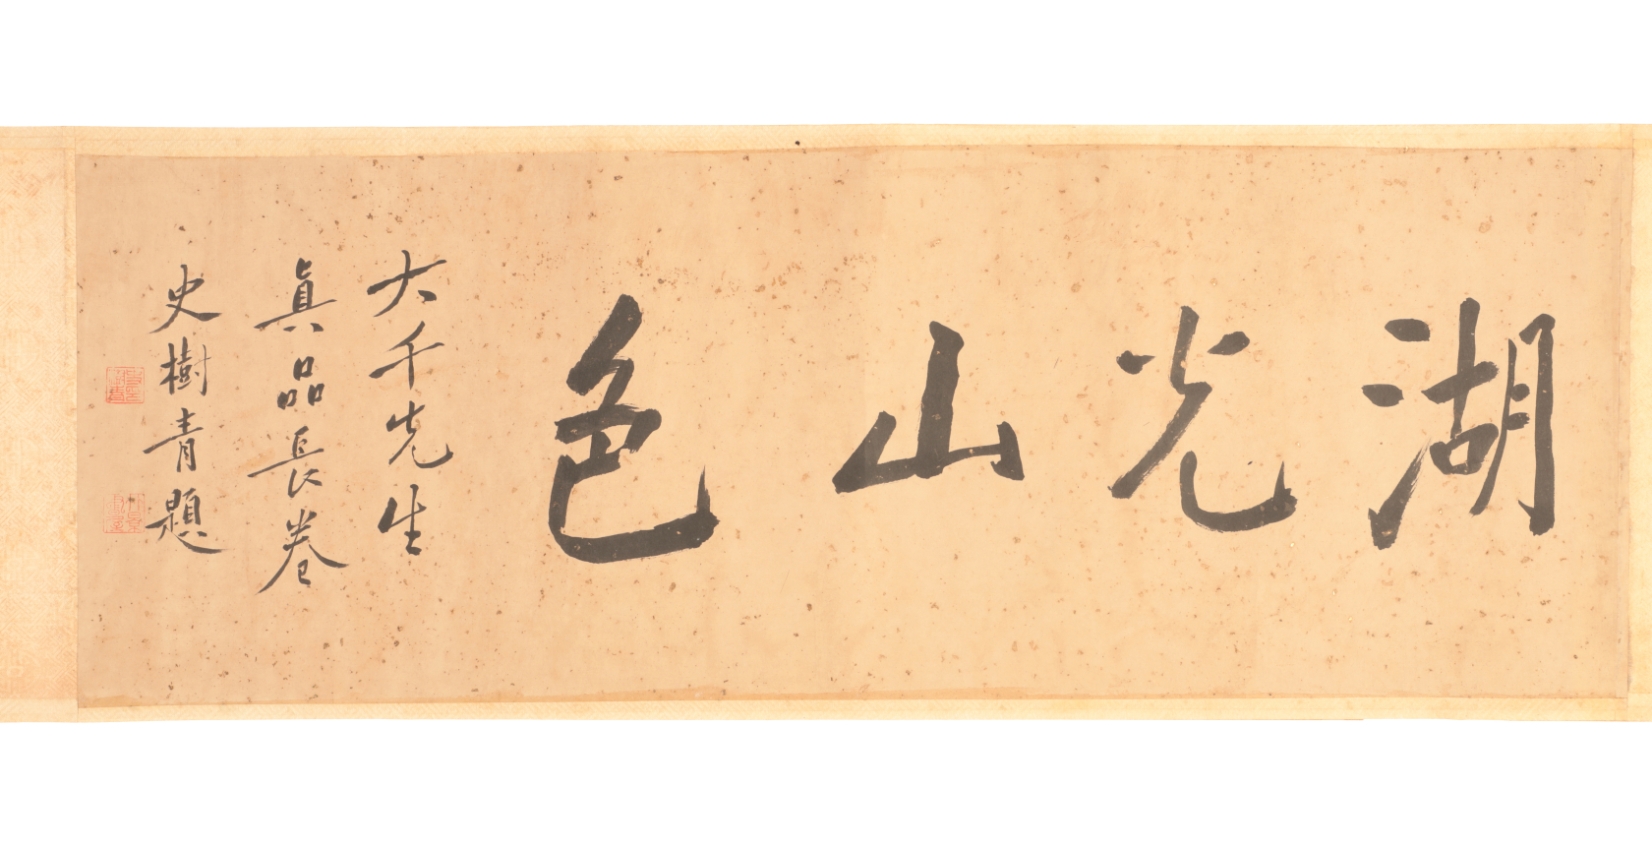 湖光山色
大千先生
真品長卷
史樹青題